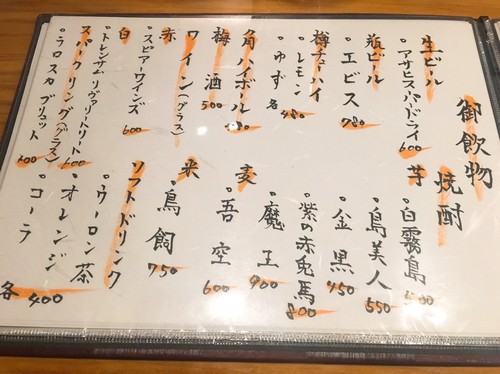 御飲物
生ビール
・アサヒスーパードライ 600
瓶ビール
・エビス 780
樽チューハイ
・レモン
・ゆず 各480
角ハイボール 480
梅酒 500
ワイン(グラス)
赤
・スピアーワインズ 600
白
・トレンサム リヴァートリート 600
スパークリング(グラス)
・ラロスカ ブリュット 600
焼酎
芋
・白霧島 500
・島美人 550
・金黒 450
・紫の赤兎馬 800
・魔王 900
麦
・吾空 600
米
・鳥飼 750
ソフトドリンク
・ウーロン茶
・オレンジ
・コーラ 各400